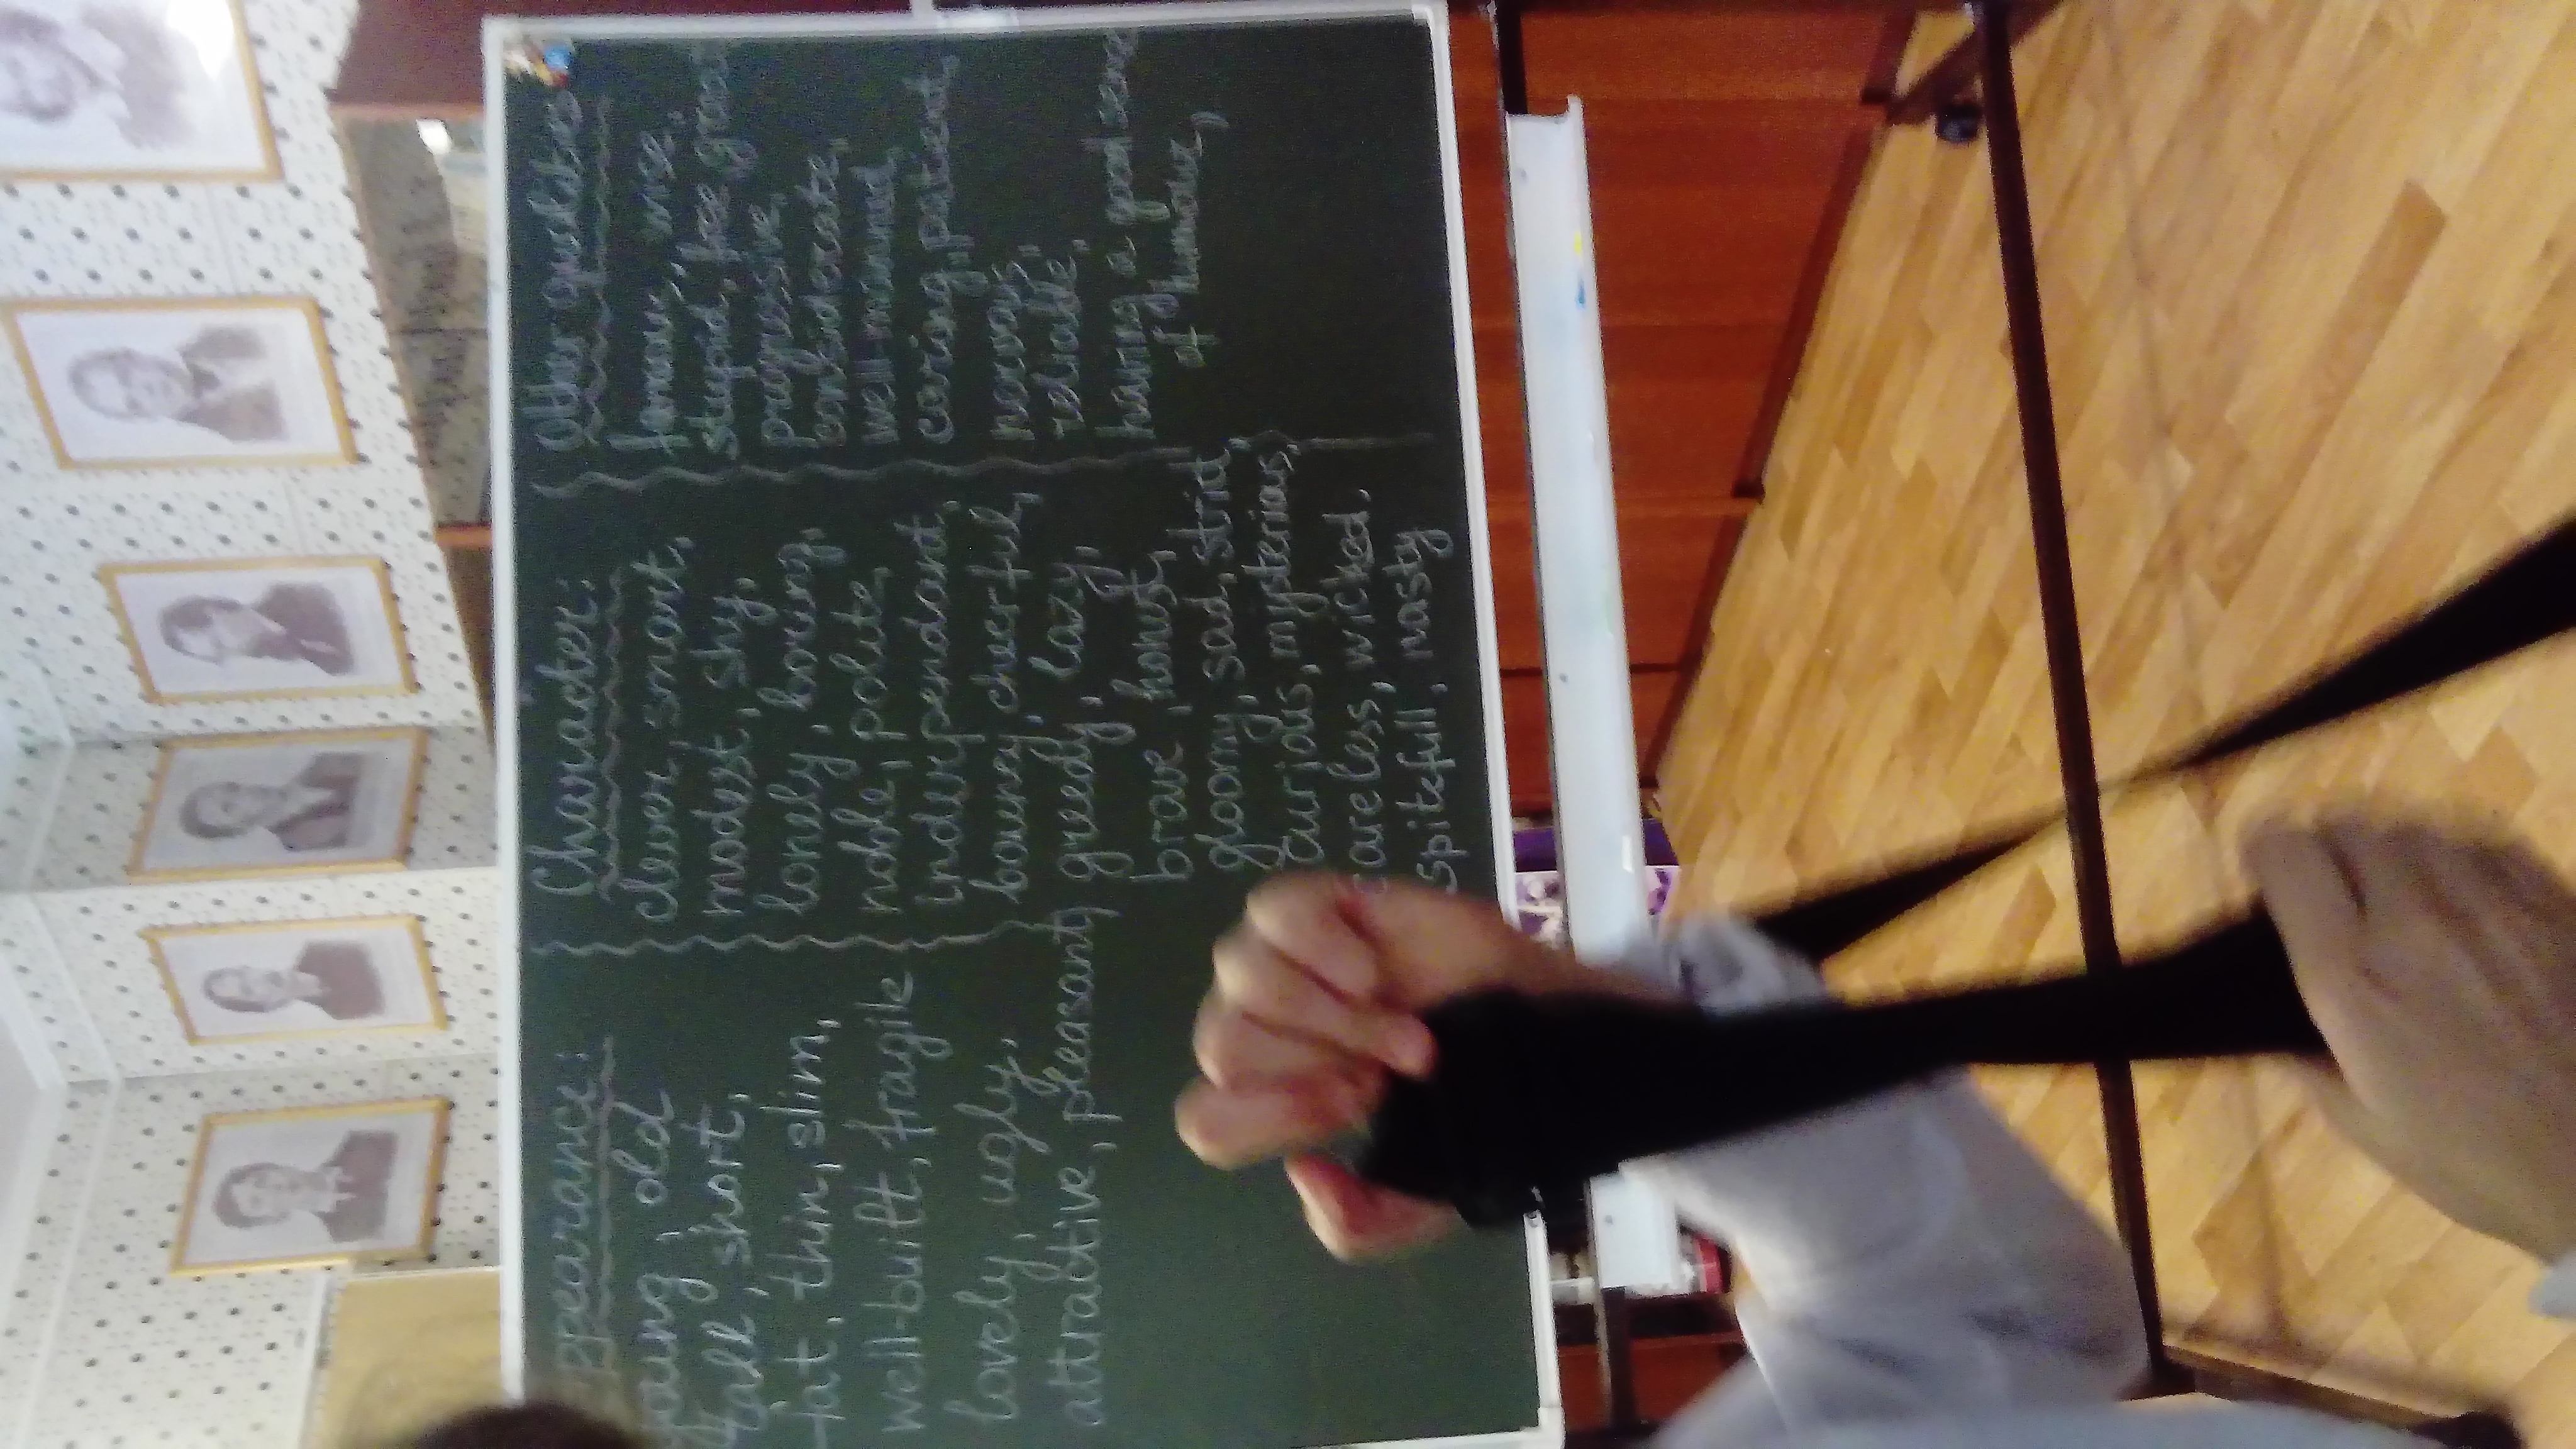 ppearance:
young, old
tall, short,
fat, thin, slim,
well-built, fragile
lovely, ugly.
attractive, pleasant
Character:
clever, smart,
modest, shy,
lonely, boring,
noble, polite,
independant,
bouncy, cheerful,
greedy, lazy,
brave, honest,
gloomy, sad, strict,
curious, mysterias,
careless, wicked.
spitefull, nasty
Other qualities
wise,
stupid,
progressive,
considerate,
well manned,
caring, patient,
nervous,
reliable,
having a good sense
of humour,